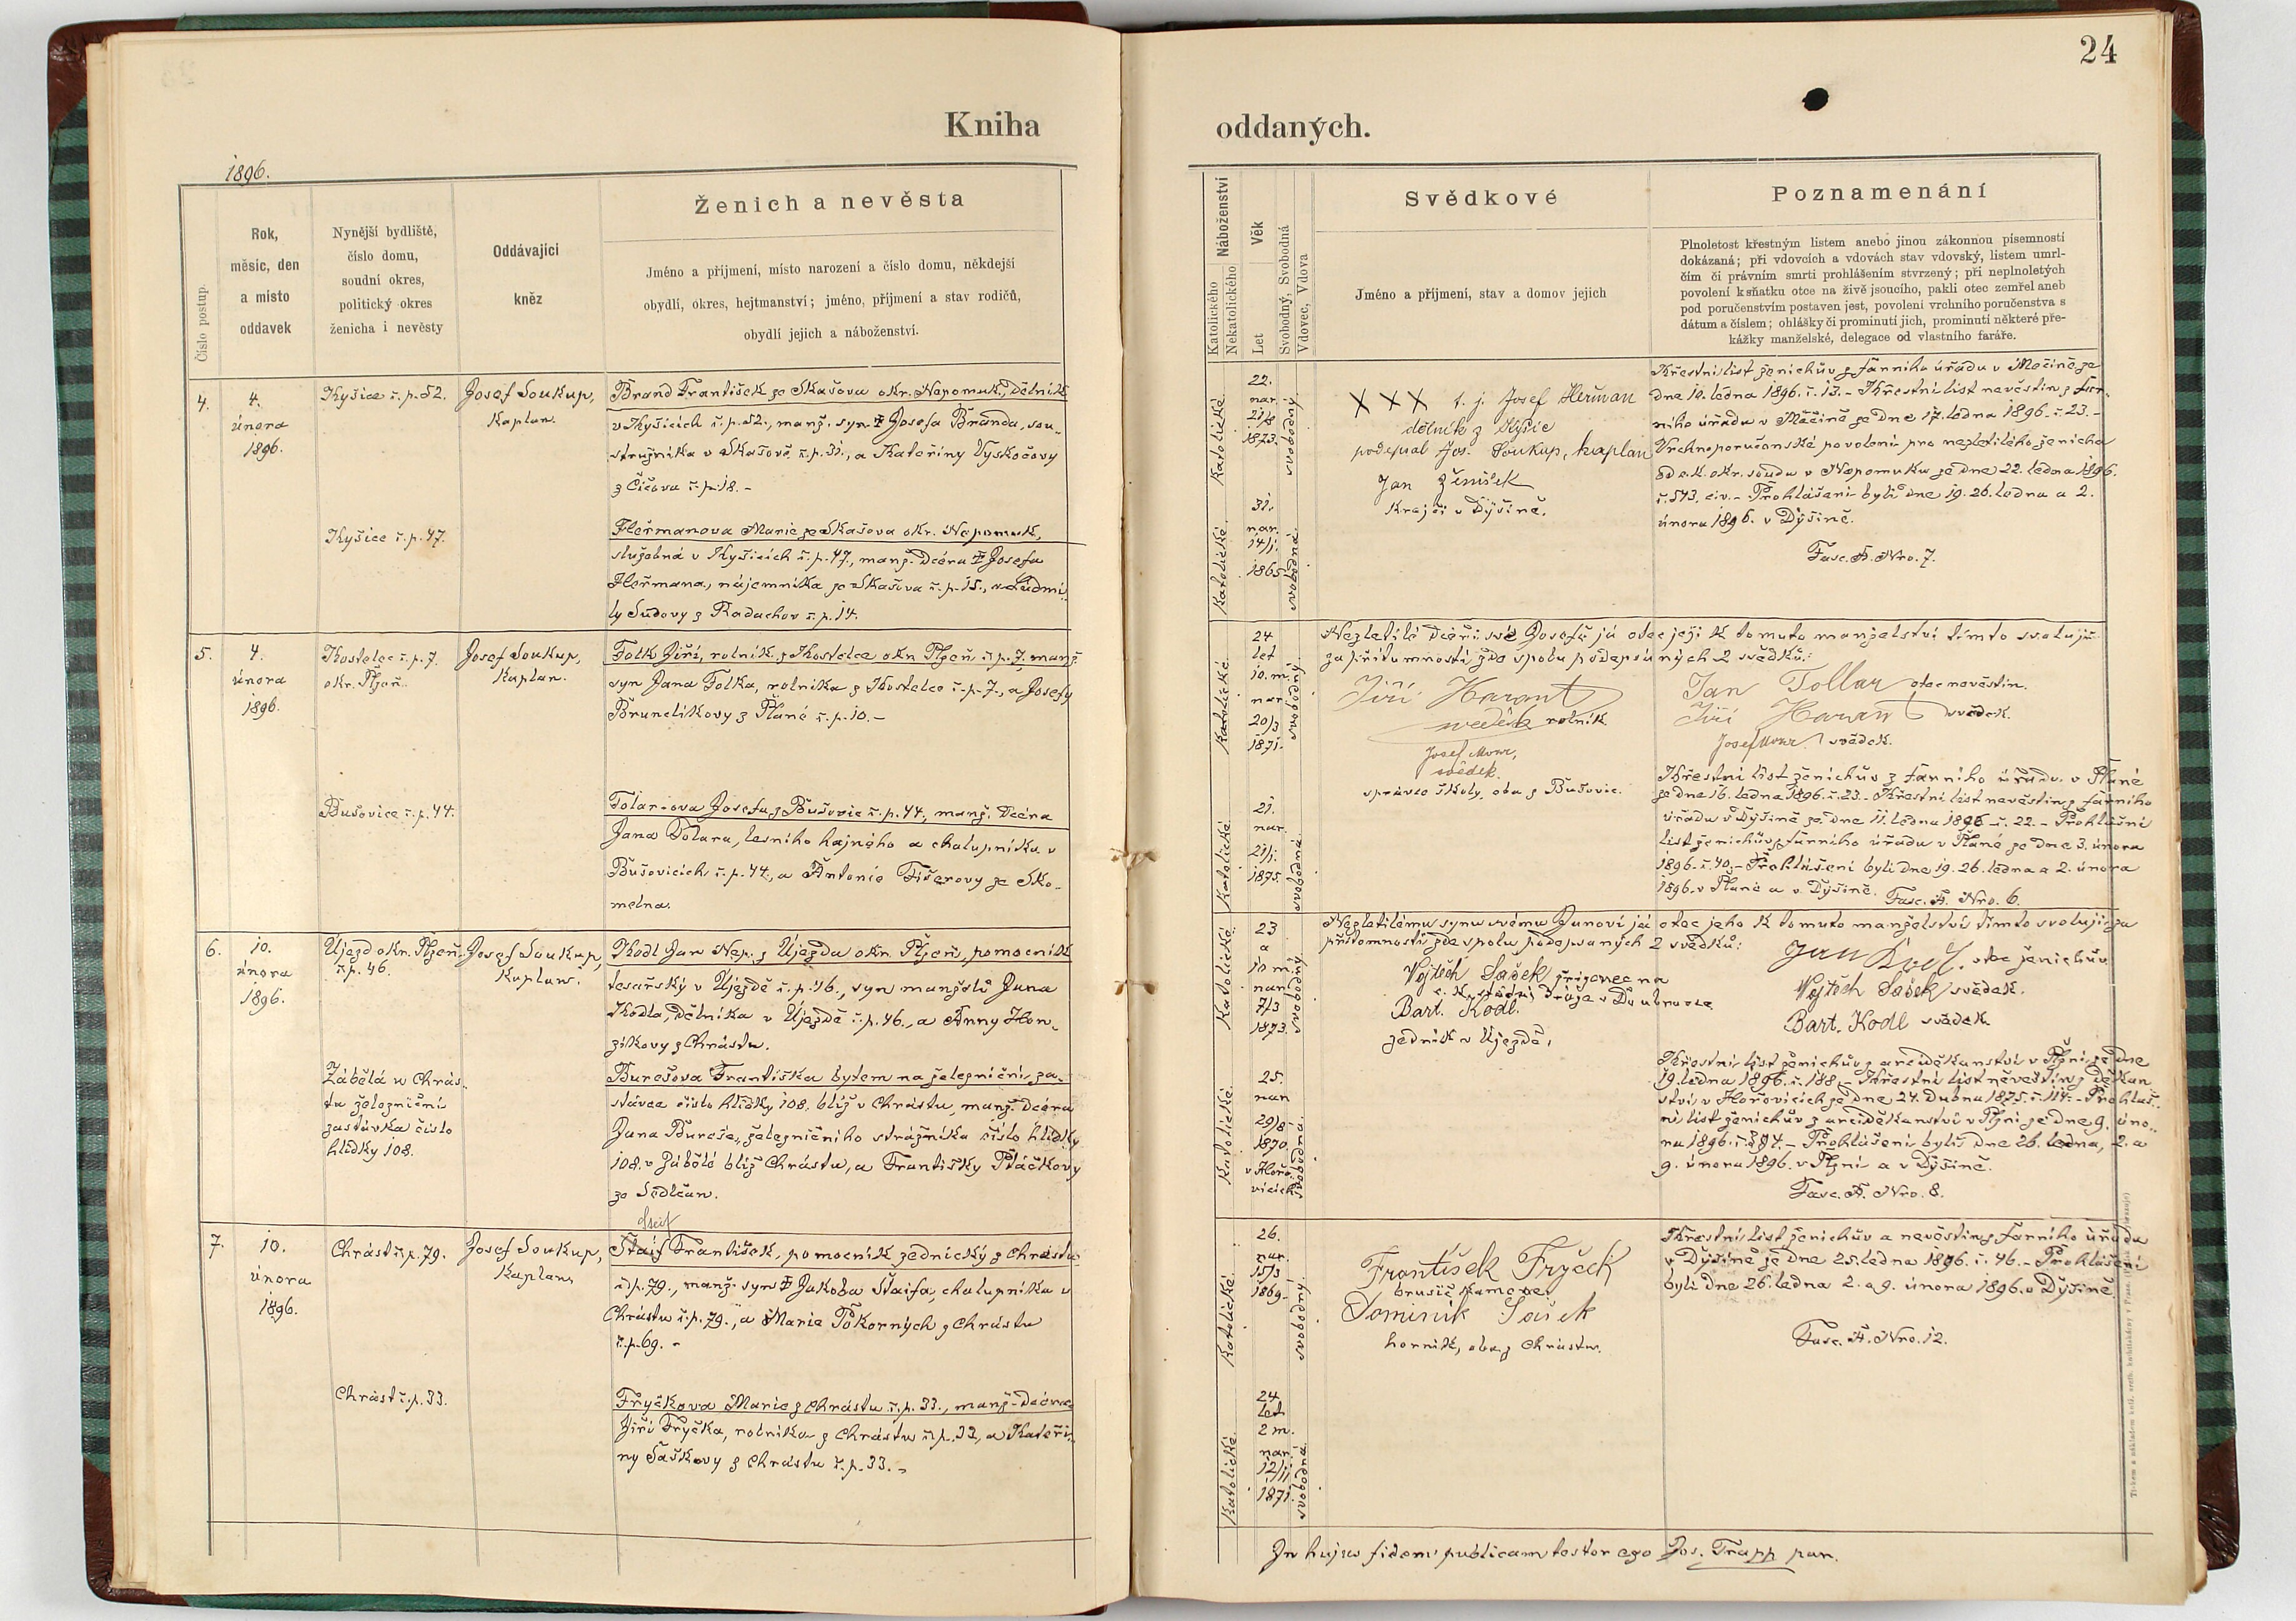 24
Kniha
oddaných.
1896.
Číslo postup.
Rok,
měsíc, den
a místo
oddavek
Nynější bydliště,
číslo domu,
soudní okres,
politický okres
ženicha i nevěsty
Oddávající
kněz
Ženich a nevěsta
Jméno a příjmení, místo narození a číslo domu, někdejší
obydlí, okres, hejtmanství; jméno, příjmení a stav rodičů,
obydlí jejich a náboženství.
Náboženství
Katolického
Nekatolického
Věk
Let
Svobodný, Svobodná
Vdovec, Vdova
Svědkové
Jméno a příjmení, stav a domov jejich
Poznamenání
Plnoletost křestným listem anebo jinou zákonnou písemností
dokázaná; při vdovcích a vdovách stav vdovský, listem umrl-
čím či právním smrti prohlášením stvrzený; při neplnoletých
povolení k sňatku otce na živě jsoucího, pakli otec zemřel aneb
pod poručenstvím postaven jest, povolení vrchního poručenstva s
dátum a číslem; ohlášky či prominutí jich, prominutí některé pře-
kážky manželské, delegace od vlastního faráře.
4.
4.
února
1896.
Kyšice č.p. 52.
Josef Soukup,
Kaplan.
Brand František ze Skašova okr. Nepomuk, dělník
v Kyšicích č.p. 52., manž. syn † Josefa Branda, sou-
stružníka v Skašově č.p. 31., a Kateřiny Vyskočovy
z Čičova č.p. 18. -
Kyšice č.p. 47.
Heřmanova Marie ze Skašova okr. Nepomuk,
služebná v Kyšicích č.p. 47., manž. dcera † Josefa
Heřmana, nájemníka ze Skašova č.p. 15., a Ludmi-
ly Sudovy z Radachov č.p. 14.
Katolické
22.
nar.
1873.
svobodný
Katolické
31.
nar.
14/1.
1865
svobodná
XXX t. j. Josef Heřman
dělník z Kyšic
podepsal Jos. Soukup, kaplan
Jan Ženíšek
Krajčí v Dýšině.
Křestní list ženichův z farního úřadu v Měčíně ze
dne 10. ledna 1896. č. 13. - Křestní list nevěstin z far-
ního úřadu v Měčíně ze dne 17. ledna 1896. č. 23. -
Vrchnoporučenské povolení pro nezletilého ženicha
od c.k. okr. soudu v Nepomuku ze dne 22. ledna 1896.
č. 573. civ. - Prohlášeni byli dne 19. 26. ledna a 2.
února 1896. v Dýšině.
Fasc. A. Nro. 7.
5.
4.
února
1896.
Kostelec č.p. 7.
okr. Plzeň.
Josef Soukup,
Kaplan.
Folk Jiří, rolník z Kostelce okr. Plzeň č.p. 7, manž.
syn Jana Folka, rolníka z Kostelce č.p. 7., a Josefy
Brunclíkovy z Plané č.p. 10. -
Bušovice č.p. 44.
Tolar-ova Josefa z Bušovic č.p. 44, manž. dcera
Jana Tolara, lesního hajného a chalupníka v
Bušovicích č.p. 44., a Antonie Fišerovy ze Sko-
melna.
Katolické
24
let
10. m.
nar.
20/3
1871.
svobodný
Katolické
21.
nar.
21/1.
1875.
svobodná
Nezletilé dceři své Josefě já otec její k tomuto manželství tímto svoluji
za přítomnosti zde spolu podepsaných 2 svědků:
Jiří Harant
svědek rolník.
Josef
svědek.
správce školy, oba z Bušovic.
Jan Tollar otec nevěstin.
Jiří Harant svědek.
Josef svědek.
Křestní list ženichův z farního úřadu v Plané
ze dne 16. ledna 1896. č. 23. - Křestní list nevěstin z farního
úřadu v Dýšině ze dne 11. ledna 1896 č. 22. - Prohlašní
list ženichův z farního úřadu v Plané ze dne 3. února
1896. č. 40. - Prohlášeni byli dne 19. 26. ledna a 2. února
1896. v Plané a v Dýšině. Fasc. A. Nro. 6.
6.
10.
února
1896.
Újezd okr. Plzeň
č.p. 46.
Josef Soukup,
Kaplan.
Kodl Jan Nep. z Újezda okr. Plzeň, pomocník
tesařský v Újezdě č.p. 46., syn manželů Jana
Kodla, dělníka v Újezdě č.p. 46., a Anny Hon-
zíkovy z Chrástu.
Zábělá u Chrás-
tu železniční
zastávka číslo
hlídky 108.
Burešova Františka bytem na železniční za-
stávce číslo hlídky 108. blíž v Chrástu, manž. dcera
Jana Bureše, železničního strážníka číslo hlídky
108. v Zábělé blíž Chrástu, a Františky Ptáčkovy
ze Sedlčan.
Katolické
23
a
10 m.
nar.
7/3
1873.
svobodný
Katolické
25.
nar.
29/8
1870.
v Hořo-
vicích
svobodná
Nezletilému synu svému Janovi já otec jeho k tomuto manželství tímto svoluji za
přítomnosti zde spolu podepsaných 2 svědků:
Vojtěch Sašek zřízenec na
c. k. státní dráze v Doubravce
Bart. Kodl.
zedník v Újezdě.
Jan Kodl. otec ženichův
Vojtěch Sašek svědek.
Bart. Kodl svědek
Křestní list ženichův z arciděkanství v Plzni ze dne
19. ledna 1896. č. 188. - Křestní list nevěstin z děkan
ství v Hořovicích ze dne 24. dubna 1875. č. 114. - Prohlaš-
ní list ženichův z arciděkanství v Plzni ze dne 9. úno-
ra 1896. č. 394 - Prohlášeni byli dne 26. ledna, 2. a
9. února 1896. v Plzni a v Dýšině.
Fasc. A. Nro. 8.
7.
10.
února
1896.
Chrást č.p. 79.
Josef Soukup,
Kaplan.
Steif
Štaif František, pomocník zednický z Chrástu
č.p. 79., manž. syn † Jakoba Štaifa, chalupníka v
Chrástu č.p. 79., a Marie Pokorných z Chrástu
č.p. 69. -
Chrást č.p. 33.
Fryčkova Marie z Chrástu č.p. 33., manž. dcera
Jiří Fryčka, rolníka z Chrástu č.p. 33, a Kateři-
ny Saškovy z Chrástu č.p. 33. -
Katolické
26.
nar.
15/3
1869.
svobodný
Katolické
24
let
2 m.
nar.
12/11
1871.
svobodná
František Fryček
brusič kamene.
Dominik Sašek
horník, oba z Chrástu.
Křestní list ženichův a nevěstin z farního úřadu
v Dýšině ze dne 25. ledna 1896. č. 46. - Prohlášeni
byli dne 26. ledna 2. a 9. února 1896. v Dýšině.
Fasc. A. Nro. 12.
In hujus fidem publicam testor ego Jos. Trapp par.